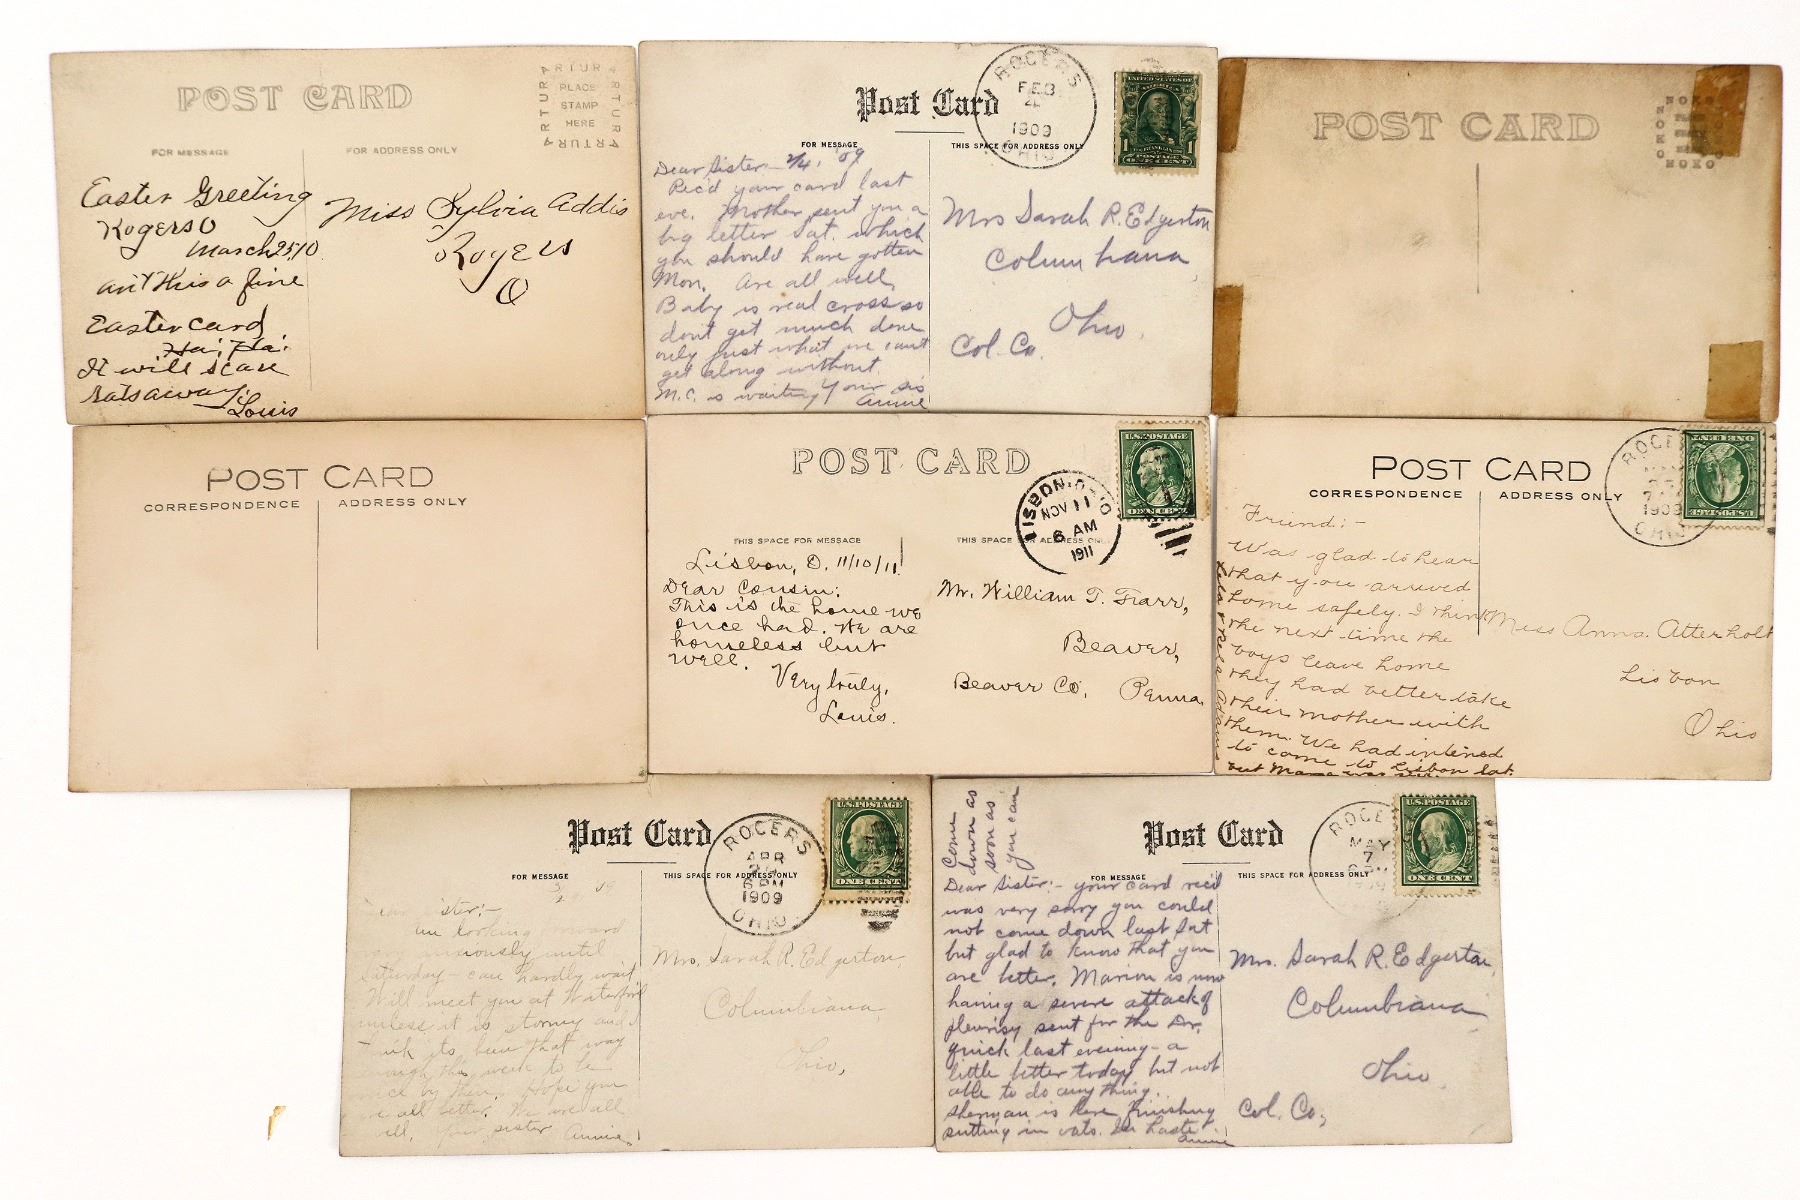 POST CARD
ARTURA
PLACE
STAMP
HERE
FOR MESSAGE
FOR ADDRESS ONLY
Easter Greeting
Rogers O
March 25, 10
ain't this a fine
Easter card
Ha! Ha!
It will scare
rats away
Louis
Miss Sylvia Addis
Rogers
O
Post Card
FOR MESSAGE
THIS SPACE FOR ADDRESS ONLY
ROGERS
FEB
1909
OHIO
UNITED STATES OF
AMERICA
POSTAGE
ONE CENT
Dear Sister - 2/4, '09
Rec'd your card last
eve. Mother sent you a
big letter Sat. which
you should have gotten
Mon. Are all well,
Baby is real cross so
don't get much done
only just what we can't
get along without.
M.C. is waiting Your sis
Annie
Mrs Sarah R. Edgerton
Columbiana,
Ohio.
Col. Co.
POST CARD
NOKO
POST CARD
CORRESPONDENCE
ADDRESS ONLY
POST CARD
THIS SPACE FOR MESSAGE
THIS SPACE FOR ADDRESS ONLY
LISBON, OHIO
NOV 11
6 AM
1911
U.S. POSTAGE
ONE CENT
Lisbon, O. 11/10/11.
Dear Cousin:
This is the home we
once had. We are
homeless but
well.
Very truly,
Louis.
Mr. William T. Farr,
Beaver,
Beaver Co, Penna.
POST CARD
CORRESPONDENCE
ADDRESS ONLY
1909
OHIO
U.S. POSTAGE
ONE CENT
Friend:-
Was glad to hear
that you arrived
home safely. I think
the next time the
boys leave home
they had better take
their mother with
them. We had intened
to come to Lisbon Sat.
but Mama was
Miss Anna Atterholt
Lisbon
Ohio
Post Card
FOR MESSAGE
THIS SPACE FOR ADDRESS ONLY
ROGERS
APR
6 PM
1909
OHIO
U.S. POSTAGE
ONE CENT
looking forward
very anxiously until
Saturday - can hardly wait
Will meet you at Waterford
unless it is stormy and I
think its been that way
enough this week to be
nice by then. Hope you
are all better. We are all
well. Your sister Annie.
Mrs. Sarah R. Edgerton,
Columbiana,
Ohio,
Post Card
FOR MESSAGE
THIS SPACE FOR ADDRESS ONLY
MAY
7
U.S. POSTAGE
ONE CENT
Come
down as
soon as
you can
Dear Sister:- your card rec'd
was very sorry you could
not come down last Sat
but glad to know that you
are better. Marion is now
having a severe attack of
pleurisy sent for the Dr.
quick last evening - a
little better today but not
able to do anything.
Sherman is here finishing
putting in oats. In haste
Annie
Mrs. Sarah R. Edgerton,
Columbiana
Ohio.
Col. Co,